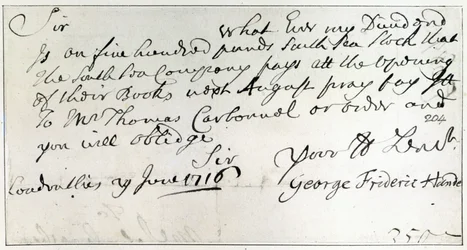 Sir What Ever my Dividend
Is on five hundred pounds South Sea Stock that
The South Sea Company pays att the opening
of their Books next August pray pay itt
To Mr Thomas Carbonnel or order and
204
you will oblidge
Sir Your
London this 29 June 1716
George Frideric Hande